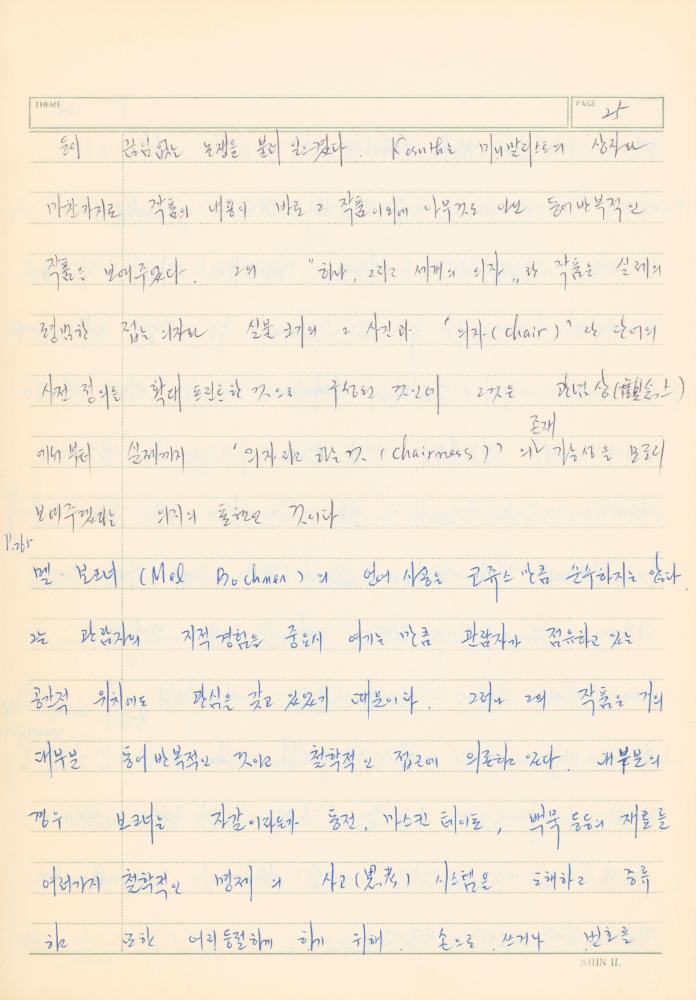 THEME
PAGE 25
등이 끊임없는 논쟁을 불러 일으켰다. Kosuth는 미니말리스트의 상자와
마찬가지로 작품의 내용이 바로 그 작품이외에 아무것도 아닌 동어반복적인
작품을 보여주었다. 그의 "하나, 그리고 세개의 의자„란 작품은 실제의
평범한 접는 의자와 실물크기의 그 사진과 '의자(chair)'란 단어의
사전 정의를 확대 프린트한 것으로 구성된 것인데 그것은 관념상
존재
에서부터 실제까지 '의자라고 하는 것 (chairness)'의 가능성을 모조리
보여주겠다는 의지의 표현인 것이다.
P.265
멜·보크너 (Mel Bochner)의 언어 사용은 코쥬스 만큼 순수하지는 않다.
그는 관람자의 지적경험을 중요시 여기는 만큼 관람자가 점유하고 있는
공간적 위치에도 관심을 갖고 있었기 때문이다. 그러나 그의 작품은 거의
대부분 동어반복적인 것이고 철학적인 접근에 의존하고 있다. 대부분의
경우 보크너는 자갈이라든가 동전, 마스킨 테이프, 백묵 등등의 재료를
여러가지 철학적인 명제의 사고(思考) 시스템을 도해하고 증류
하고 또한 어리둥절하게 하기 위해 손으로 쓰거나 번호를
SHIN IL